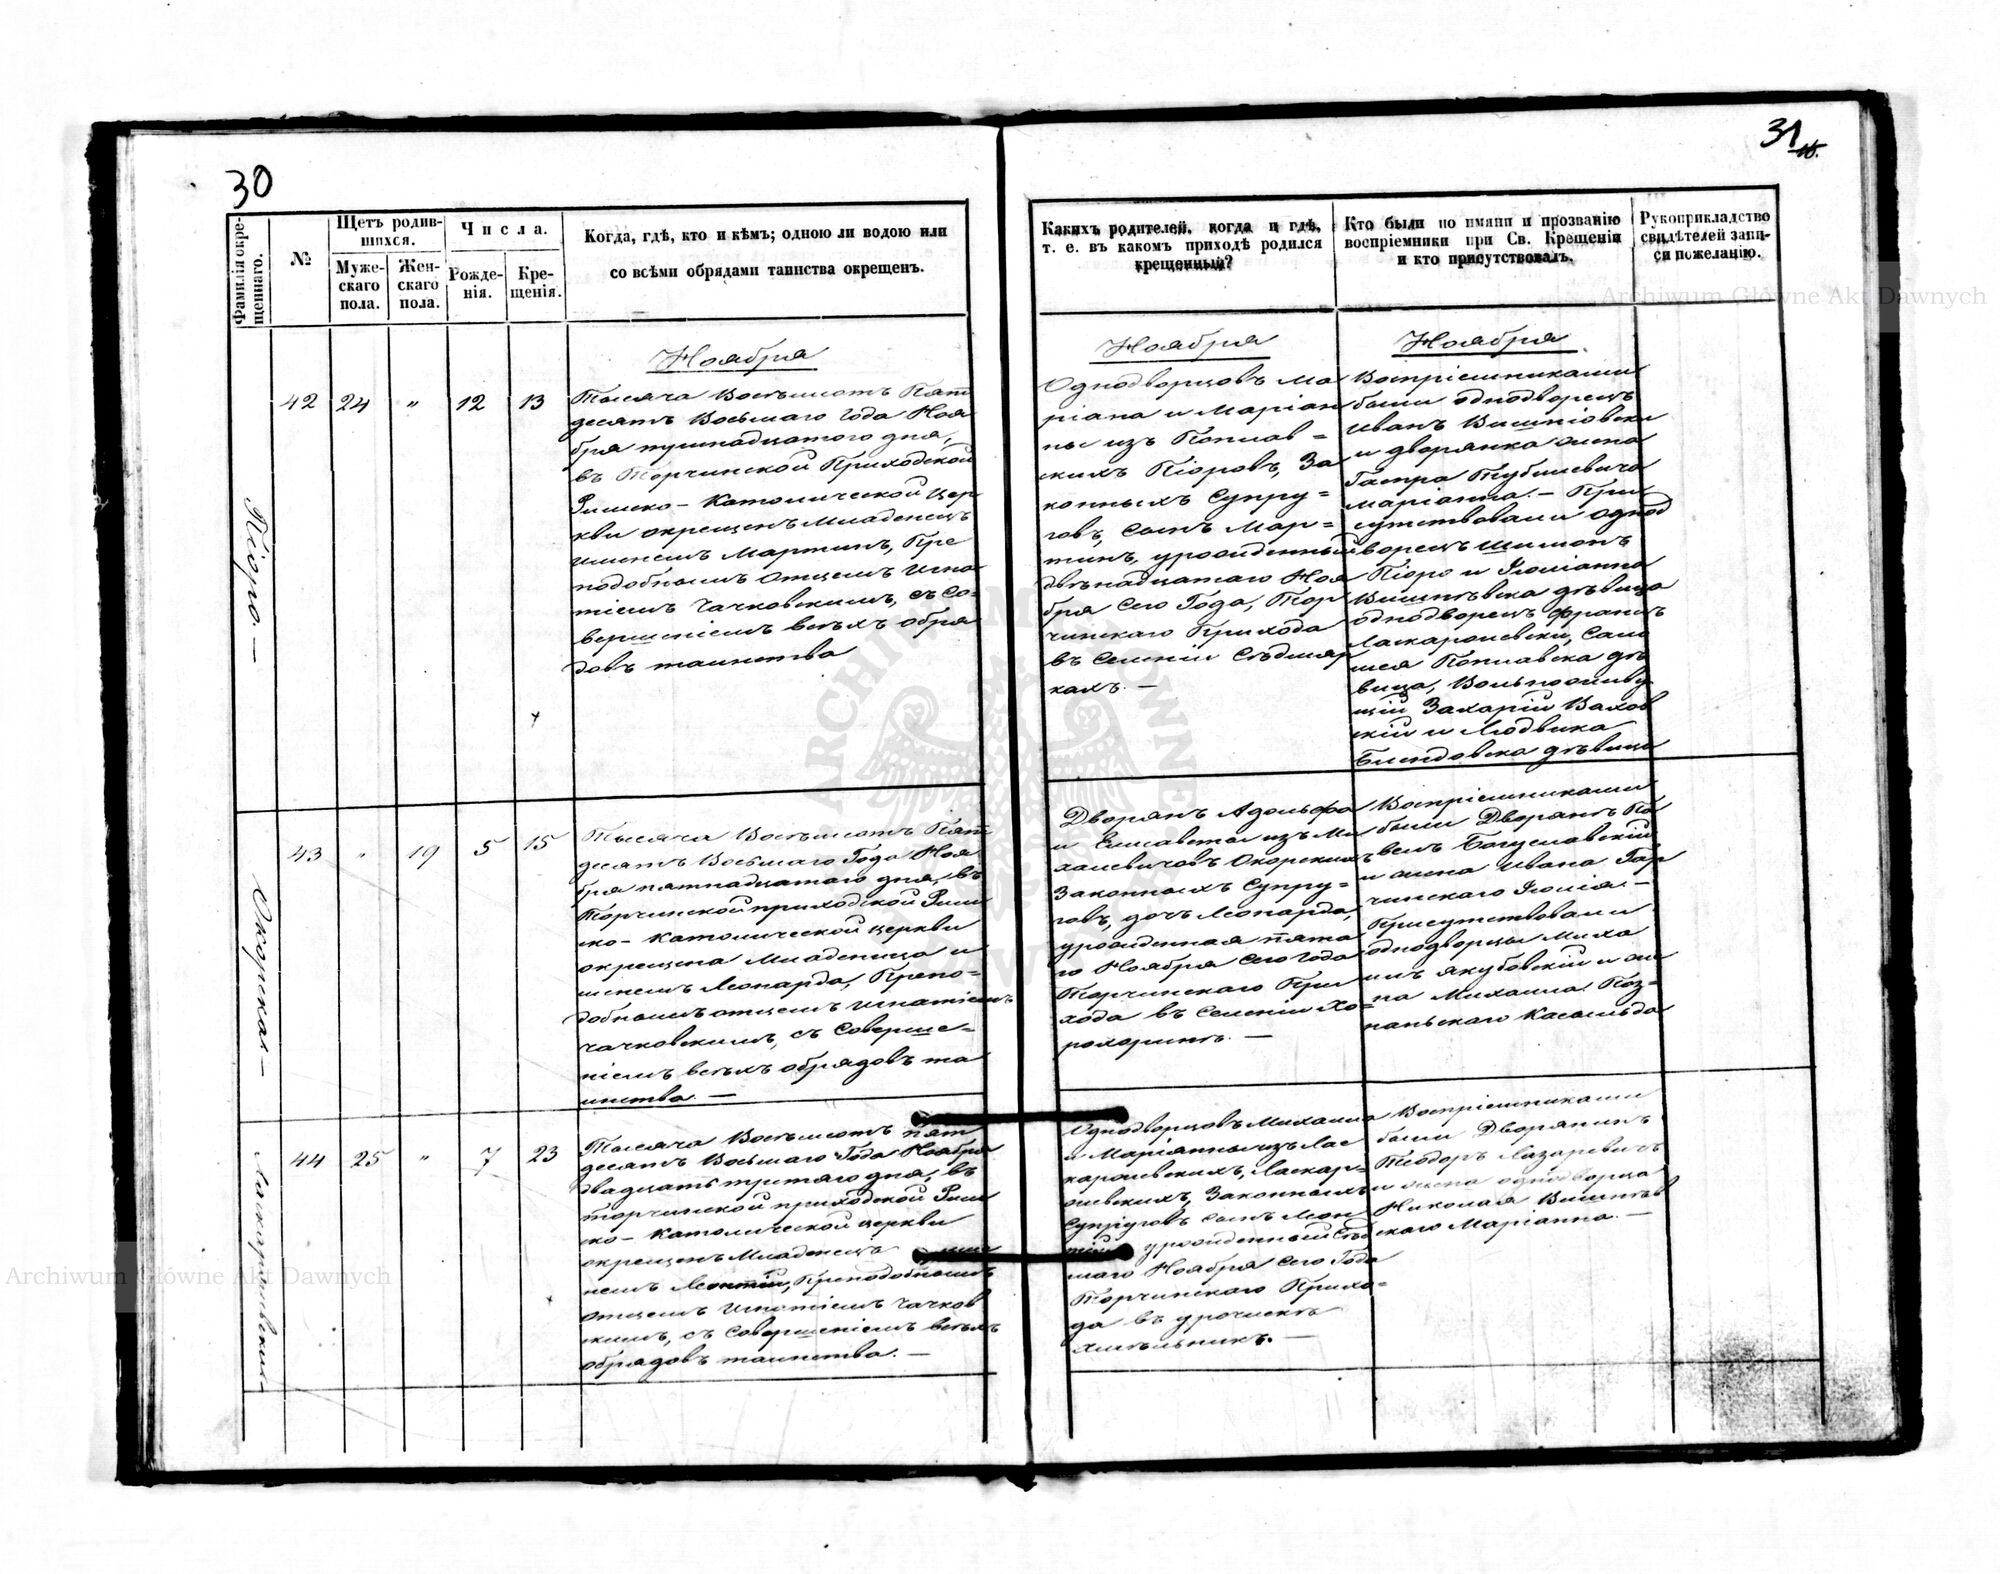 30
31
Фамилія окрещеннаго.
№
Щетъ родившихся.
Мужескаго пола.
Женскаго пола.
Числа.
Рожденія.
Крещенія.
Когда, гдѣ, кто и кѣмъ; одною ли водою или
со всѣми обрядами таинства окрещенъ.
Каких родителей, когда и гдѣ,
т. е. въ какомъ приходѣ родился
крещенный?
Кто были по имяни и прозванію
воспріемники при Св. Крещеніи
и кто присутствовалъ.
Рукоприкладство
свидѣтелей запи-
си пожеланію.
Піоро —
42 24 " 12 13
Ноября
Тысяча Восѣмсотъ Пят
десятъ Восьмаго Года Ноя
бря тринадцатого дня,
въ Торчинской Приходской
Римско-Католической Цер
кви окрещенъ Младенецъ
именемъ Мартинъ, Пре
подобнымъ Отцемъ Игна
тіемъ Чачковскимъ, съ Со-
вершеніемъ всѣхъ обря
довъ таинства
Ноября
Однодворцовъ Ма
ріана и Маріан
ны изъ Поплав=
скихъ Піоровъ, За
конныхъ Супру=
говъ, Сынъ Мар=
тинъ, урожденный
двѣнадцатаго Ноя
бря Сего Года, Тор
чинскаго Прихода
въ Селеніи Сѣдмяр
кахъ. —
Ноября
Воспріемниками
были однодворецъ
Иванъ Вишніовски
и дворянка жена
Маріанна. — При
сутствовали однод
ворецъ Шимонъ
Піоро и Юліанна
Вишнѣвска дѣвица
однодворецъ Францъ
Ласкарошевски, Сало
мея Поплавска дѣ
вица, Вольнослужу
щій Захарій Вахов
скій и Людвика
дѣвица
Окорская —
43 " 19 5 15
Тысяча Восѣмсотъ Пят
десятъ Восьмаго Года Ноя
бря пятнадцатаго дня, въ
Торчинской приходской Рим
ско-Католической церкви
окрещена Младеница и
менемъ Леонарда, Препо=
добнымъ отцемъ Игнатіемъ
Чачковскимъ, съ Соверше=
ніемъ всѣхъ обрядовъ та
инства. —
Дворянъ Адольфа
и Елисаветы изъ Ми
халевичовъ Окорскихъ
Законныхъ Супру=
говъ, дочь Леонарда,
урожденная пята
го Ноября Сего Года
Торчинскаго При
хода въ Селеніи Хо=
рохоринѣ. —
Воспріемниками
были Дворянъ Па
велъ Богуславскій
и жена Ивана Гор
чинскаго Юлія —
Присутствовали
однодворцы Миха
илъ Якубовскій и же
на Михаила Поз=
наньскаго Касильда
Ласкаришевский
44 25 " 7 23
Тысяча Восѣмсотъ пят
десятъ Восьмаго Года Ноября
двадцать третяго дня, въ
торчинской приходской Рим
ско-Католической церкви
окрещенъ Младенецъ име
немъ Леонтій, Преподобнымъ
отцемъ Игнатіемъ Чачков
скимъ, съ Совершеніемъ всѣхъ
обрядовъ таинства. —
Однодворцовъ Михаила
и Маріянны изъ Лас
карошевскихъ, Ласкар=
ошевскихъ, Законныхъ
Супруговъ Сынъ Леон
тій, урожденный Сѣд
маго Ноября Сего Года
Торчинскаго Прихо=
да въ урочискѣ
Хмѣльникъ. —
Воспріемниками
были Дворянинъ
Теодоръ Лазаревичъ
и жена однодворца
Николая Вишнѣв
скаго Маріанна. —
Archiwum Główne Akt Dawnych
Archiwum Główne Akt Dawnych